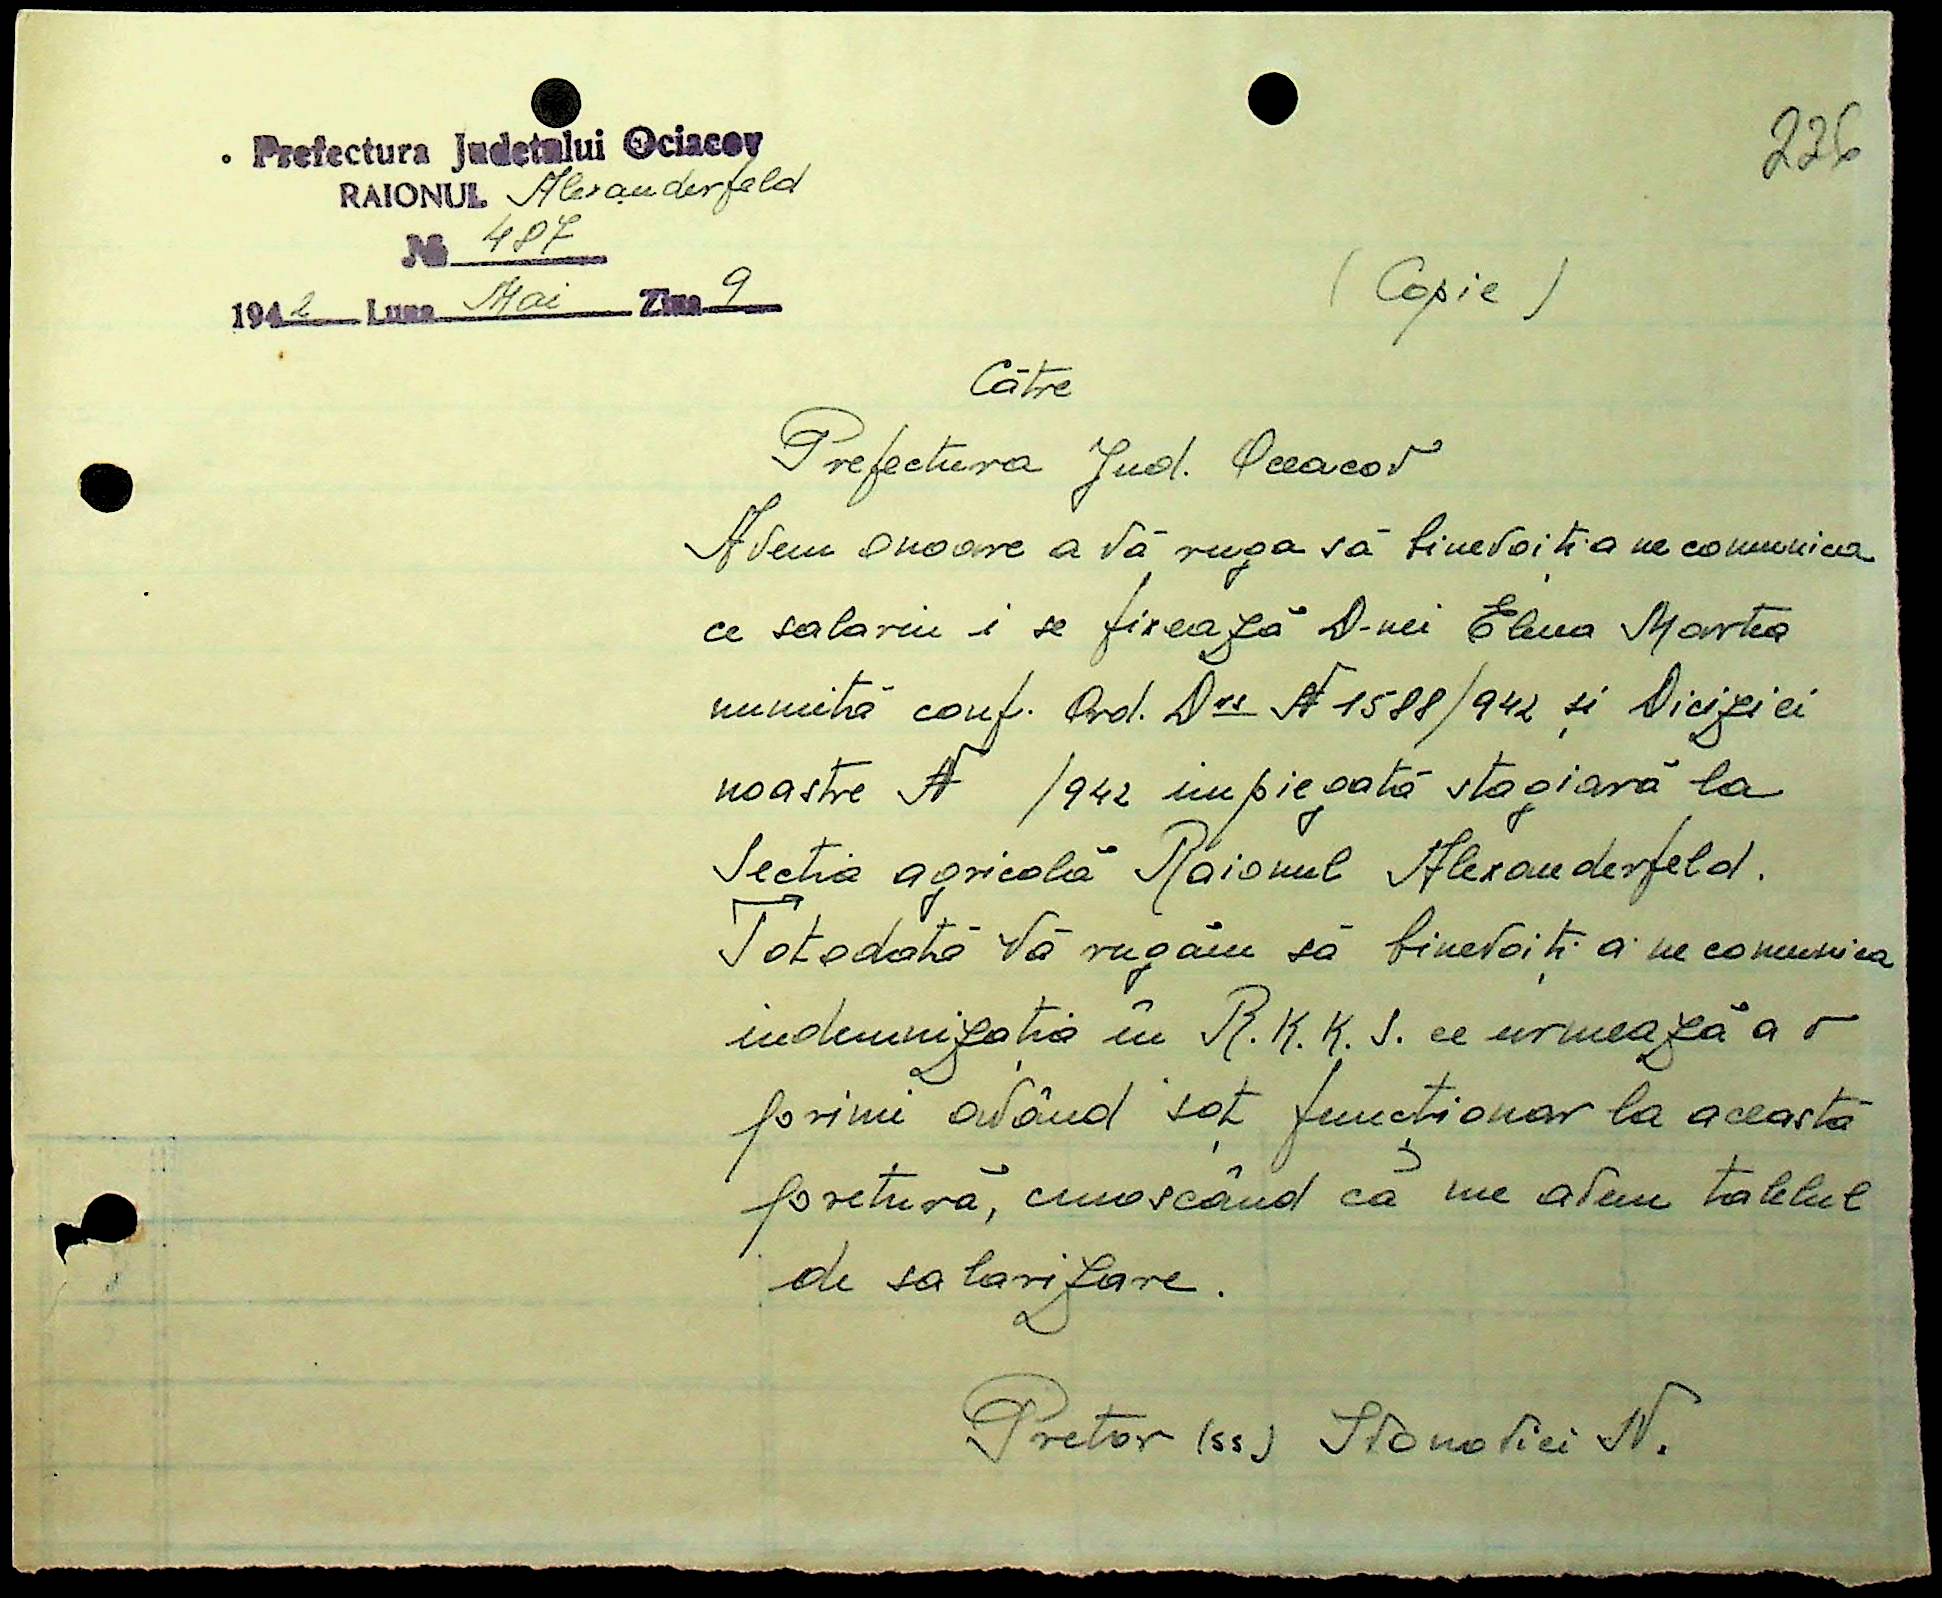 Prefectura Judetului Ociacov
226
RAIONUL Alexanderfeld
№ 487
1942 Luna Mai Ziua 9
(Copie)
Către
Prefectura Jud. Oceacov
Avem onoare a vă ruga să binevoiți a ne comunica
ce salariu i se fixează D-nei Elena Martha
numită conf. Ord. Dvs N 1588/942 și Diciziei
noastre N /942 impiegată stagiară la
Sectia agricolă Raionul Alexanderfeld.
Totodată vă rugăm să binevoiți a ne comunica
indemnizația în R.K.K.S. ce urmează a o
primi având soț funcționar la această
pretură, cunoscând că nu avem tabelul
de salarizare.
Pretor (ss) Ivanovici N.